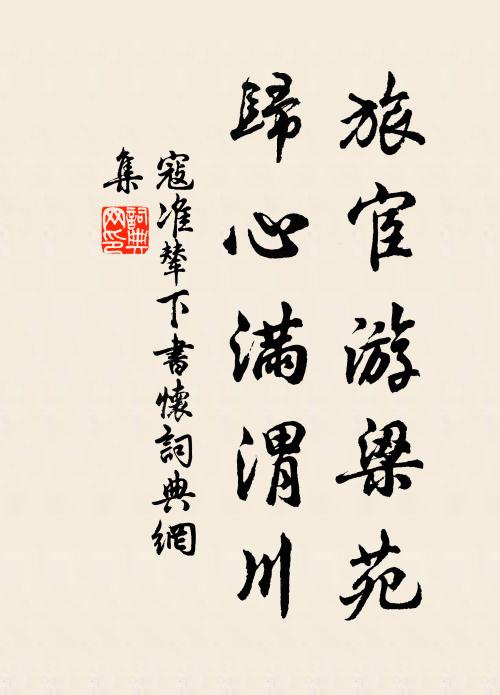 旅宦游梁苑
歸心滿渭川
寇准輦下書懷詞典網
集
詞典
网印